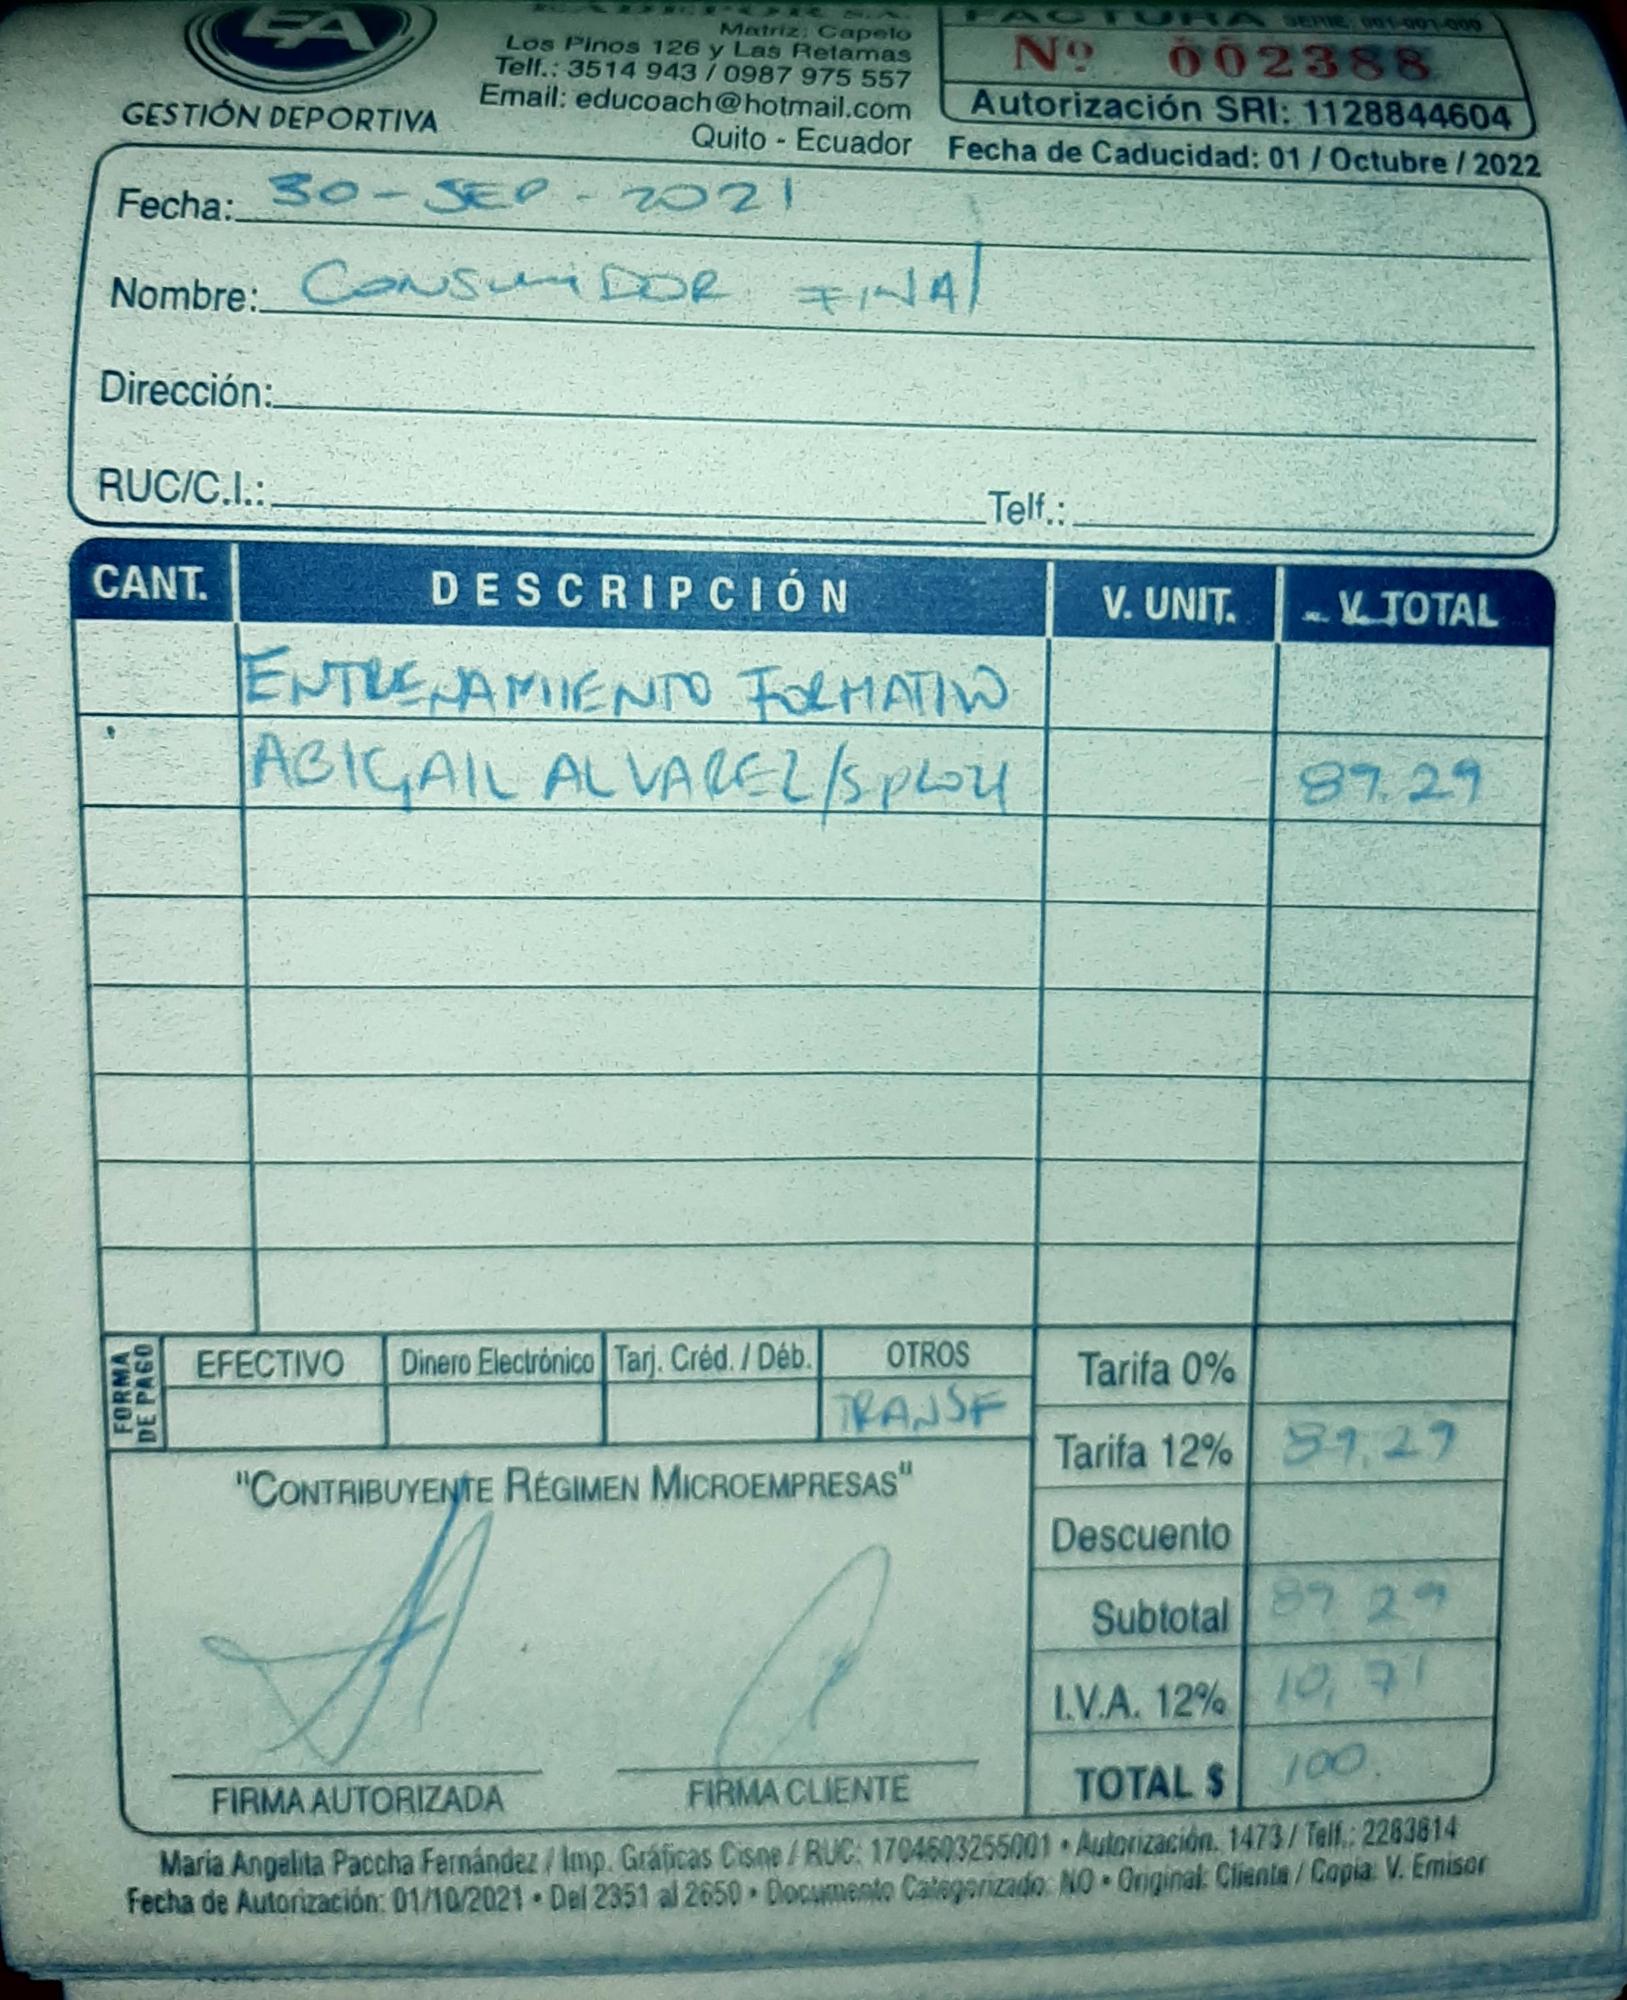 EA
GESTIÓN DEPORTIVA
Matriz: Capelo
Los Pinos 126 y Las Retamas
Telf.: 3514 943 / 0987 975 557
Email: educoach@hotmail.com
Quito - Ecuador
FACTURA SERIE: 001-001-000
Nº 002388
Autorización SRI: 1128844604
Fecha de Caducidad: 01 / Octubre / 2022
Fecha: 30-SEP-2021
Nombre: CONSUMIDOR FINAl
Dirección:
RUC/C.I.: Telf.:
CANT. DESCRIPCIÓN V. UNIT. V. TOTAL
ENTRENAMIIENTO FORMATIVO
ABIGAIL ALVAREZ/ 89.29
FORMA DE PAGO EFECTIVO Dinero Electrónico Tarj. Créd. / Déb. OTROS
TRANSF
"CONTRIBUYENTE RÉGIMEN MICROEMPRESAS"
FIRMA AUTORIZADA FIRMA CLIENTE
Tarifa 0%
Tarifa 12% 89.29
Descuento
Subtotal 89 29
I.V.A. 12% 10,71
TOTAL $ 100.
María Angelita Paccha Fernández / Imp. Gráficas Cisne / RUC: 1704603255001 • Autorización. 1473 / Telf.: 2283814
Fecha de Autorización: 01/10/2021 • Del 2351 al 2650 • Documento Categorizado: NO • Original: Cliente / Copia: V. Emisor